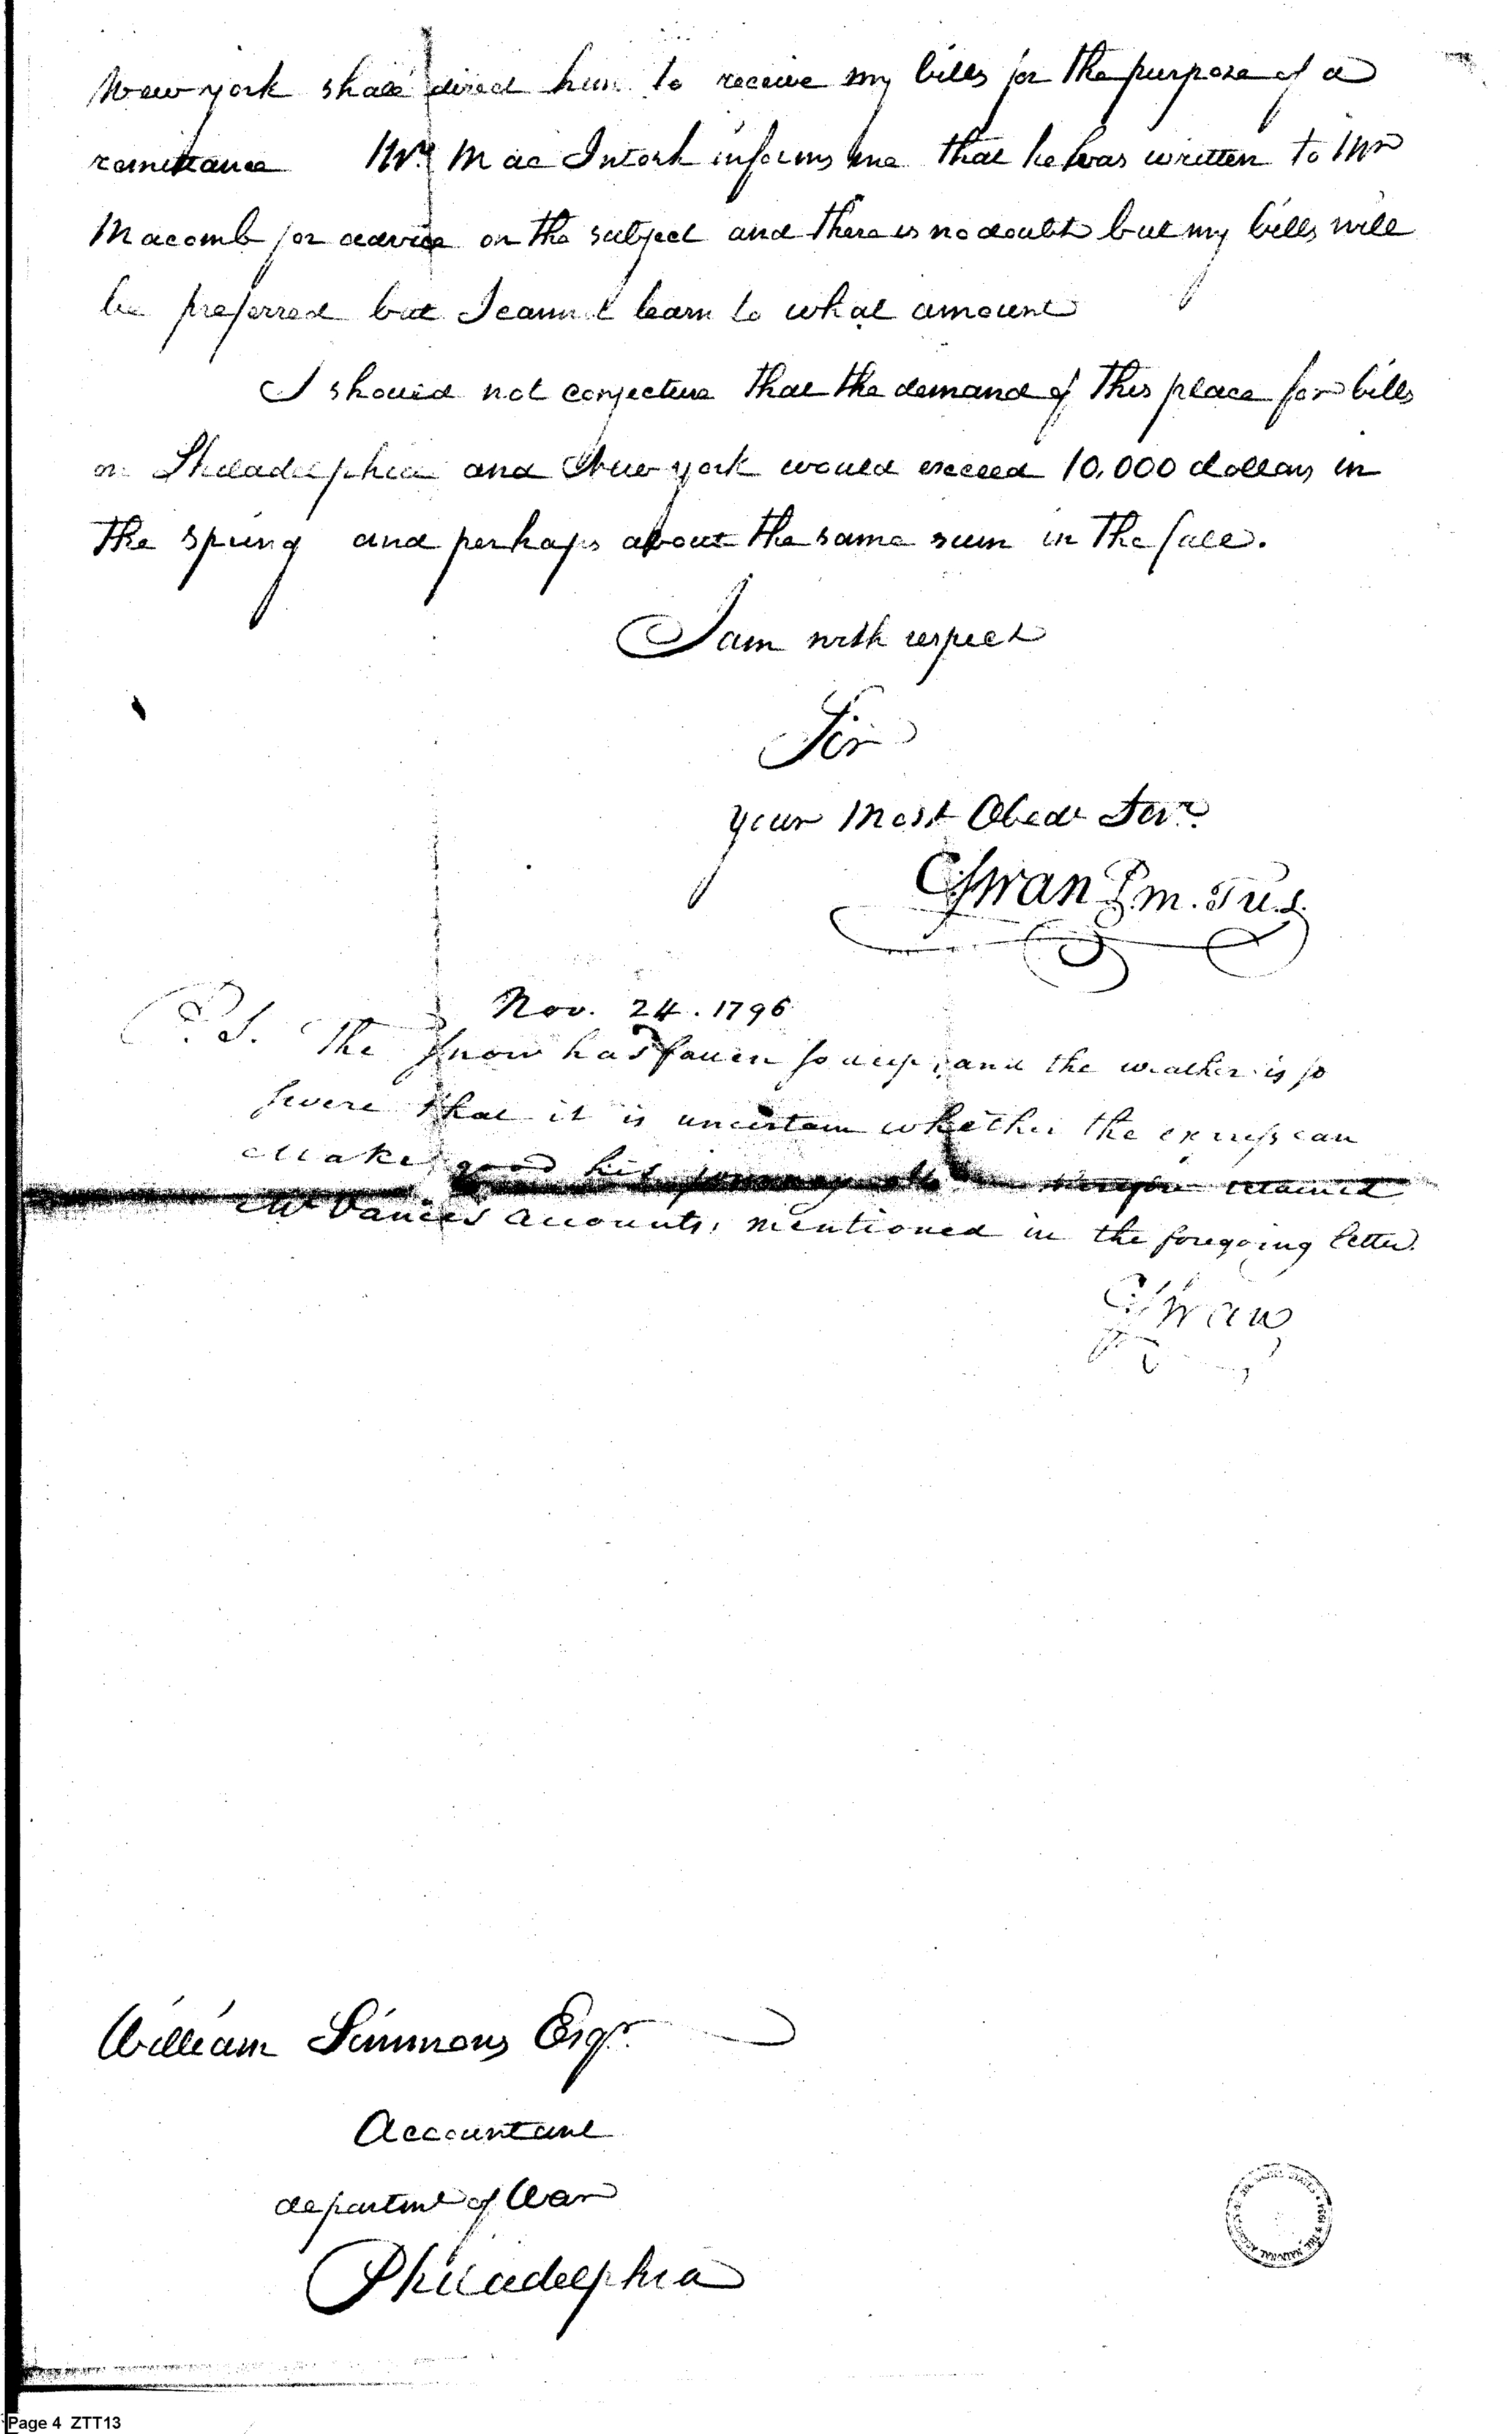 New york shall direct him to receive my bills for the purpose of a
remittance Mr. Mac Intosh informs me that he has written to Mr
Macomb for advice on the subject and there is no doubt but my bills will
be preferred but I cannot learn to what amount
I should not conjecture that the demand of this place for bills
on Philadelphia and New york would exceed 10,000 dollars in
the spring and perhaps about the same sum in the fall.
I am with respect
Sir
your Most Obedt Servt
CSwan P.m. T U.S.
Nov. 24. 1796
P.S. The Snow has fallen so deep, and the weather is so
severe that it is uncertain whether the express can
Make good his journey therefore retained
Mr Vance's Accounts, mentioned in the foregoing letter.
CSwan
William Simmons Esqr.
Accountant
departmt of War
Philadelphia
Page 4 ZTT13